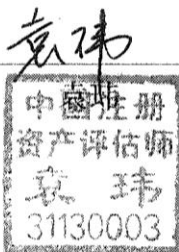 袁玮
袁玮
中国注册
资产评估师
袁 玮
31130003